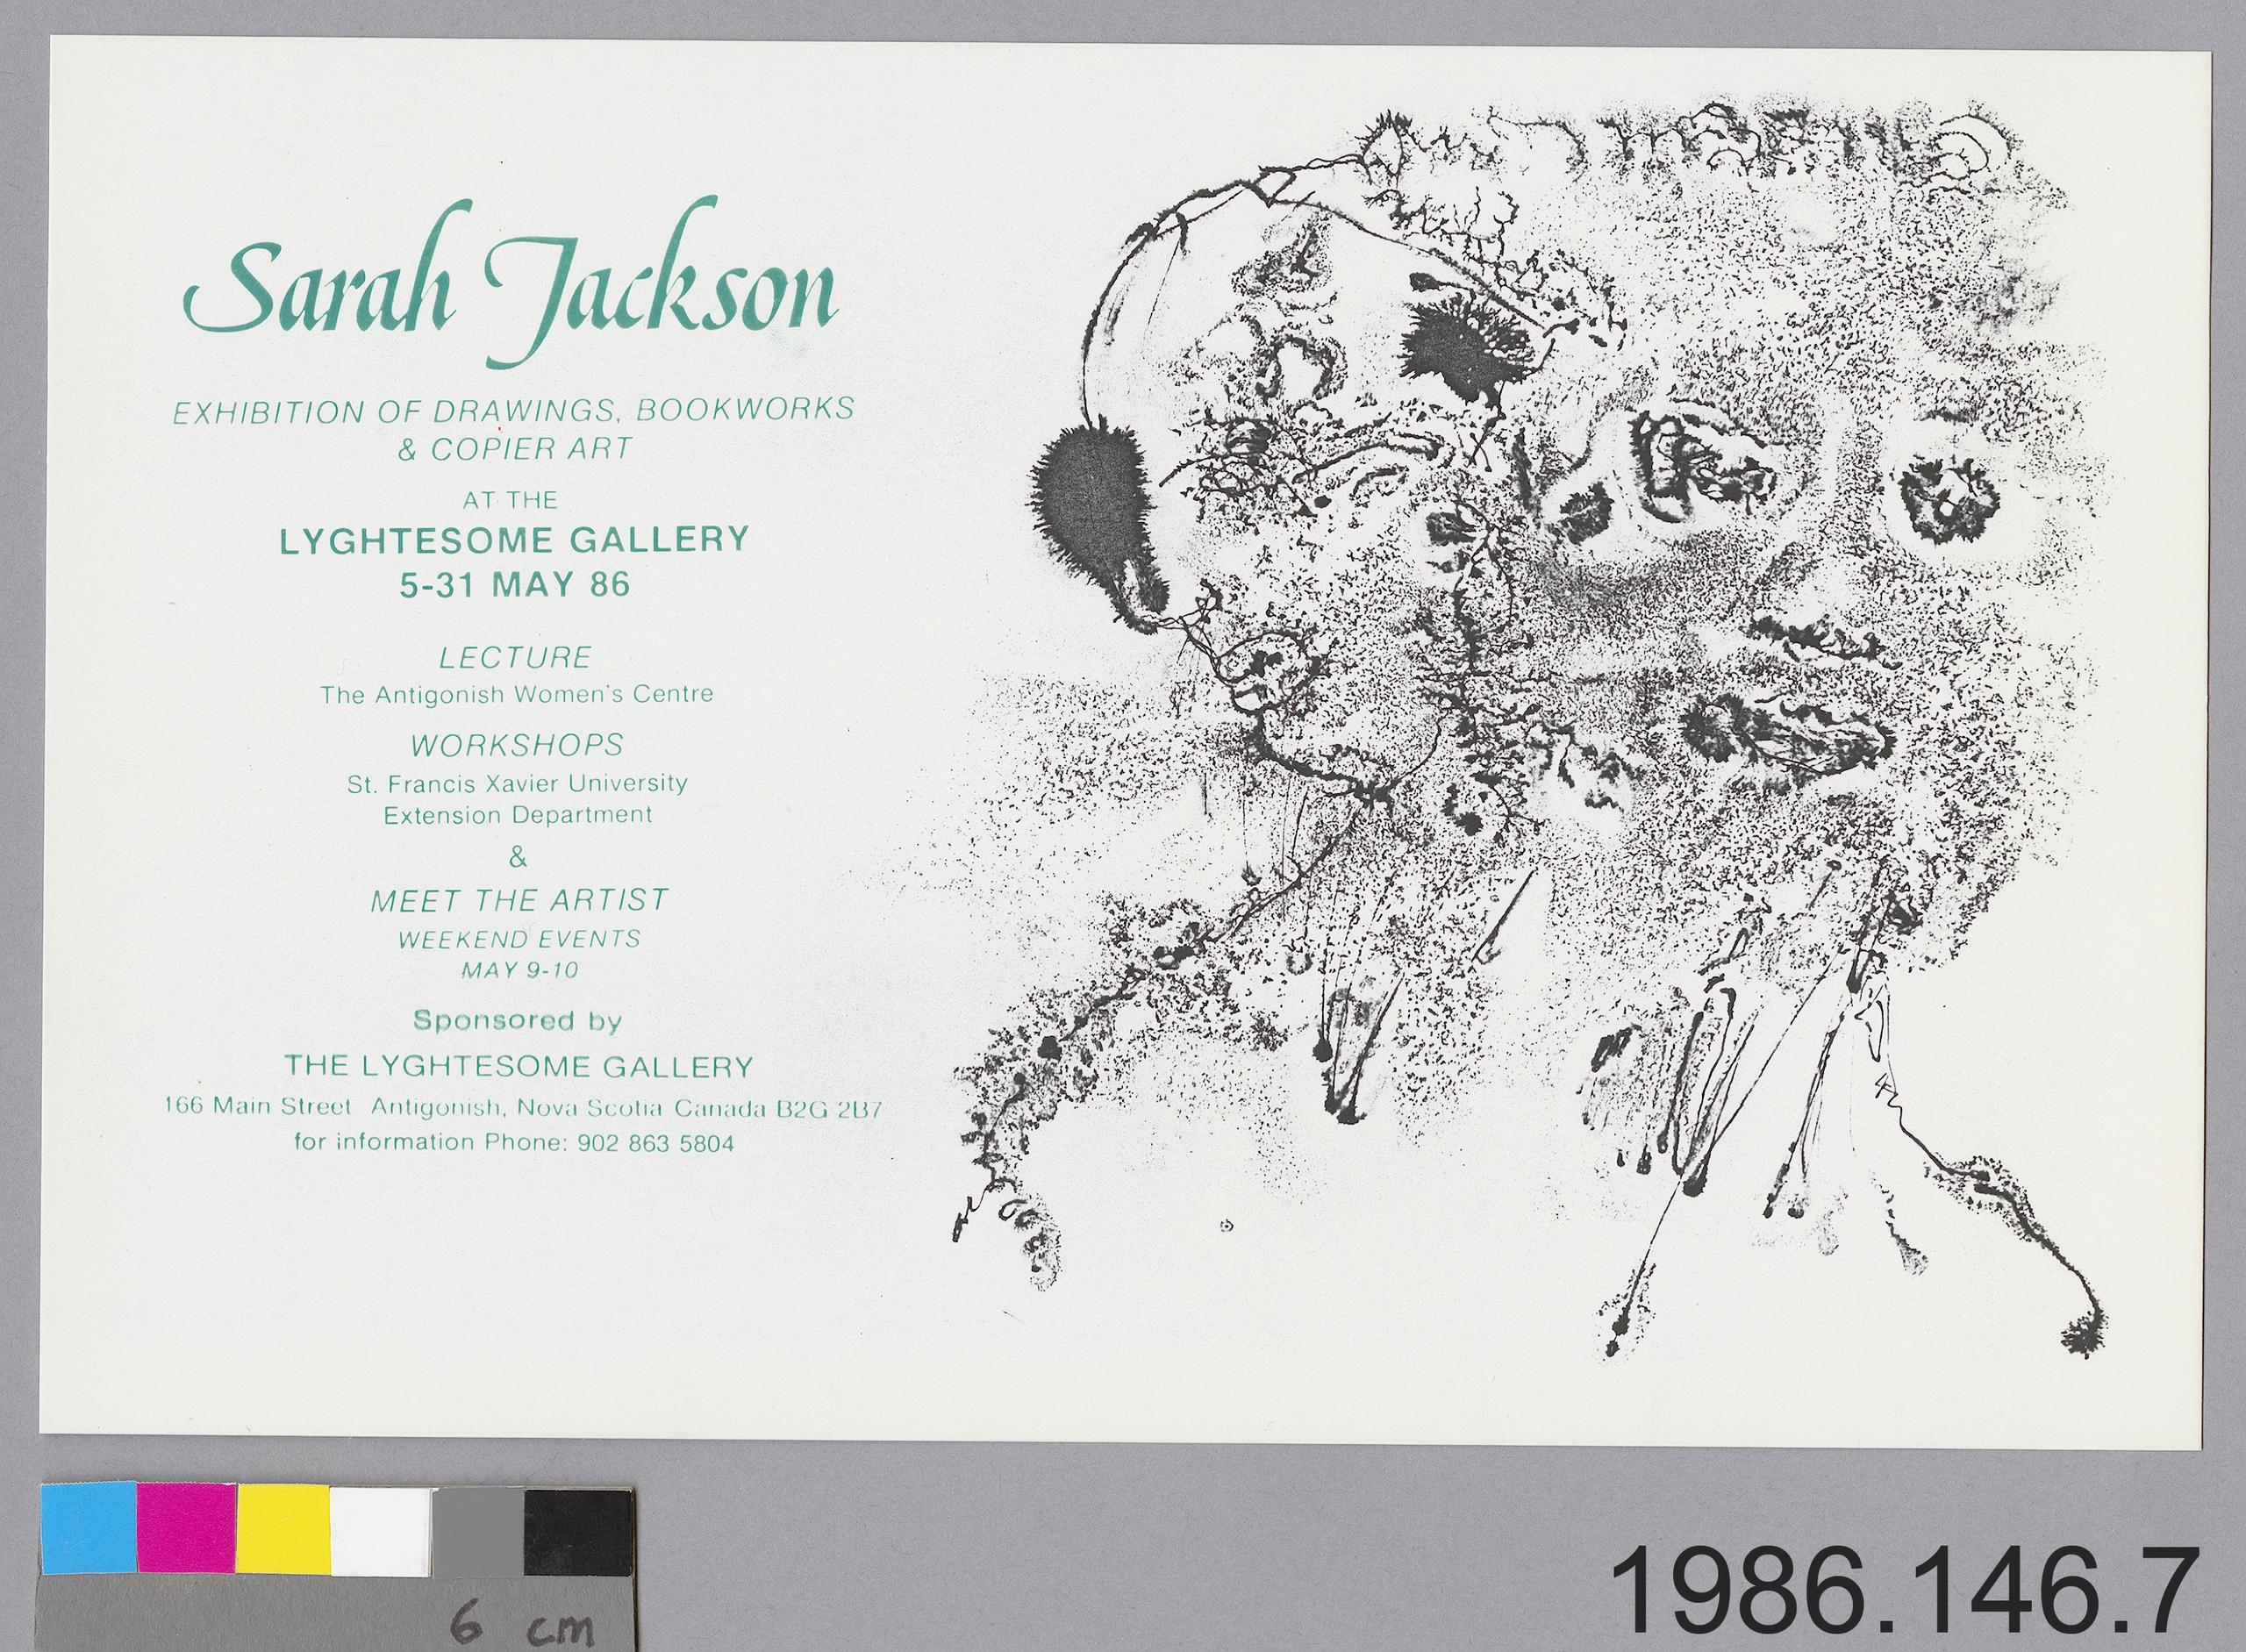 Sarah Jackson
EXHIBITION OF DRAWINGS, BOOKWORKS
& COPIER ART
AT THE
LYGHTESOME GALLERY
5-31 MAY 86
LECTURE
The Antigonish Women's Centre
WORKSHOPS
St. Francis Xavier University
Extension Department
&
MEET THE ARTIST
WEEKEND EVENTS
MAY 9-10
Sponsored by
THE LYGHTESOME GALLERY
166 Main Street Antigonish, Nova Scotia Canada B2G 2B7
for information Phone: 902 863 5804
6 cm
1986.146.7